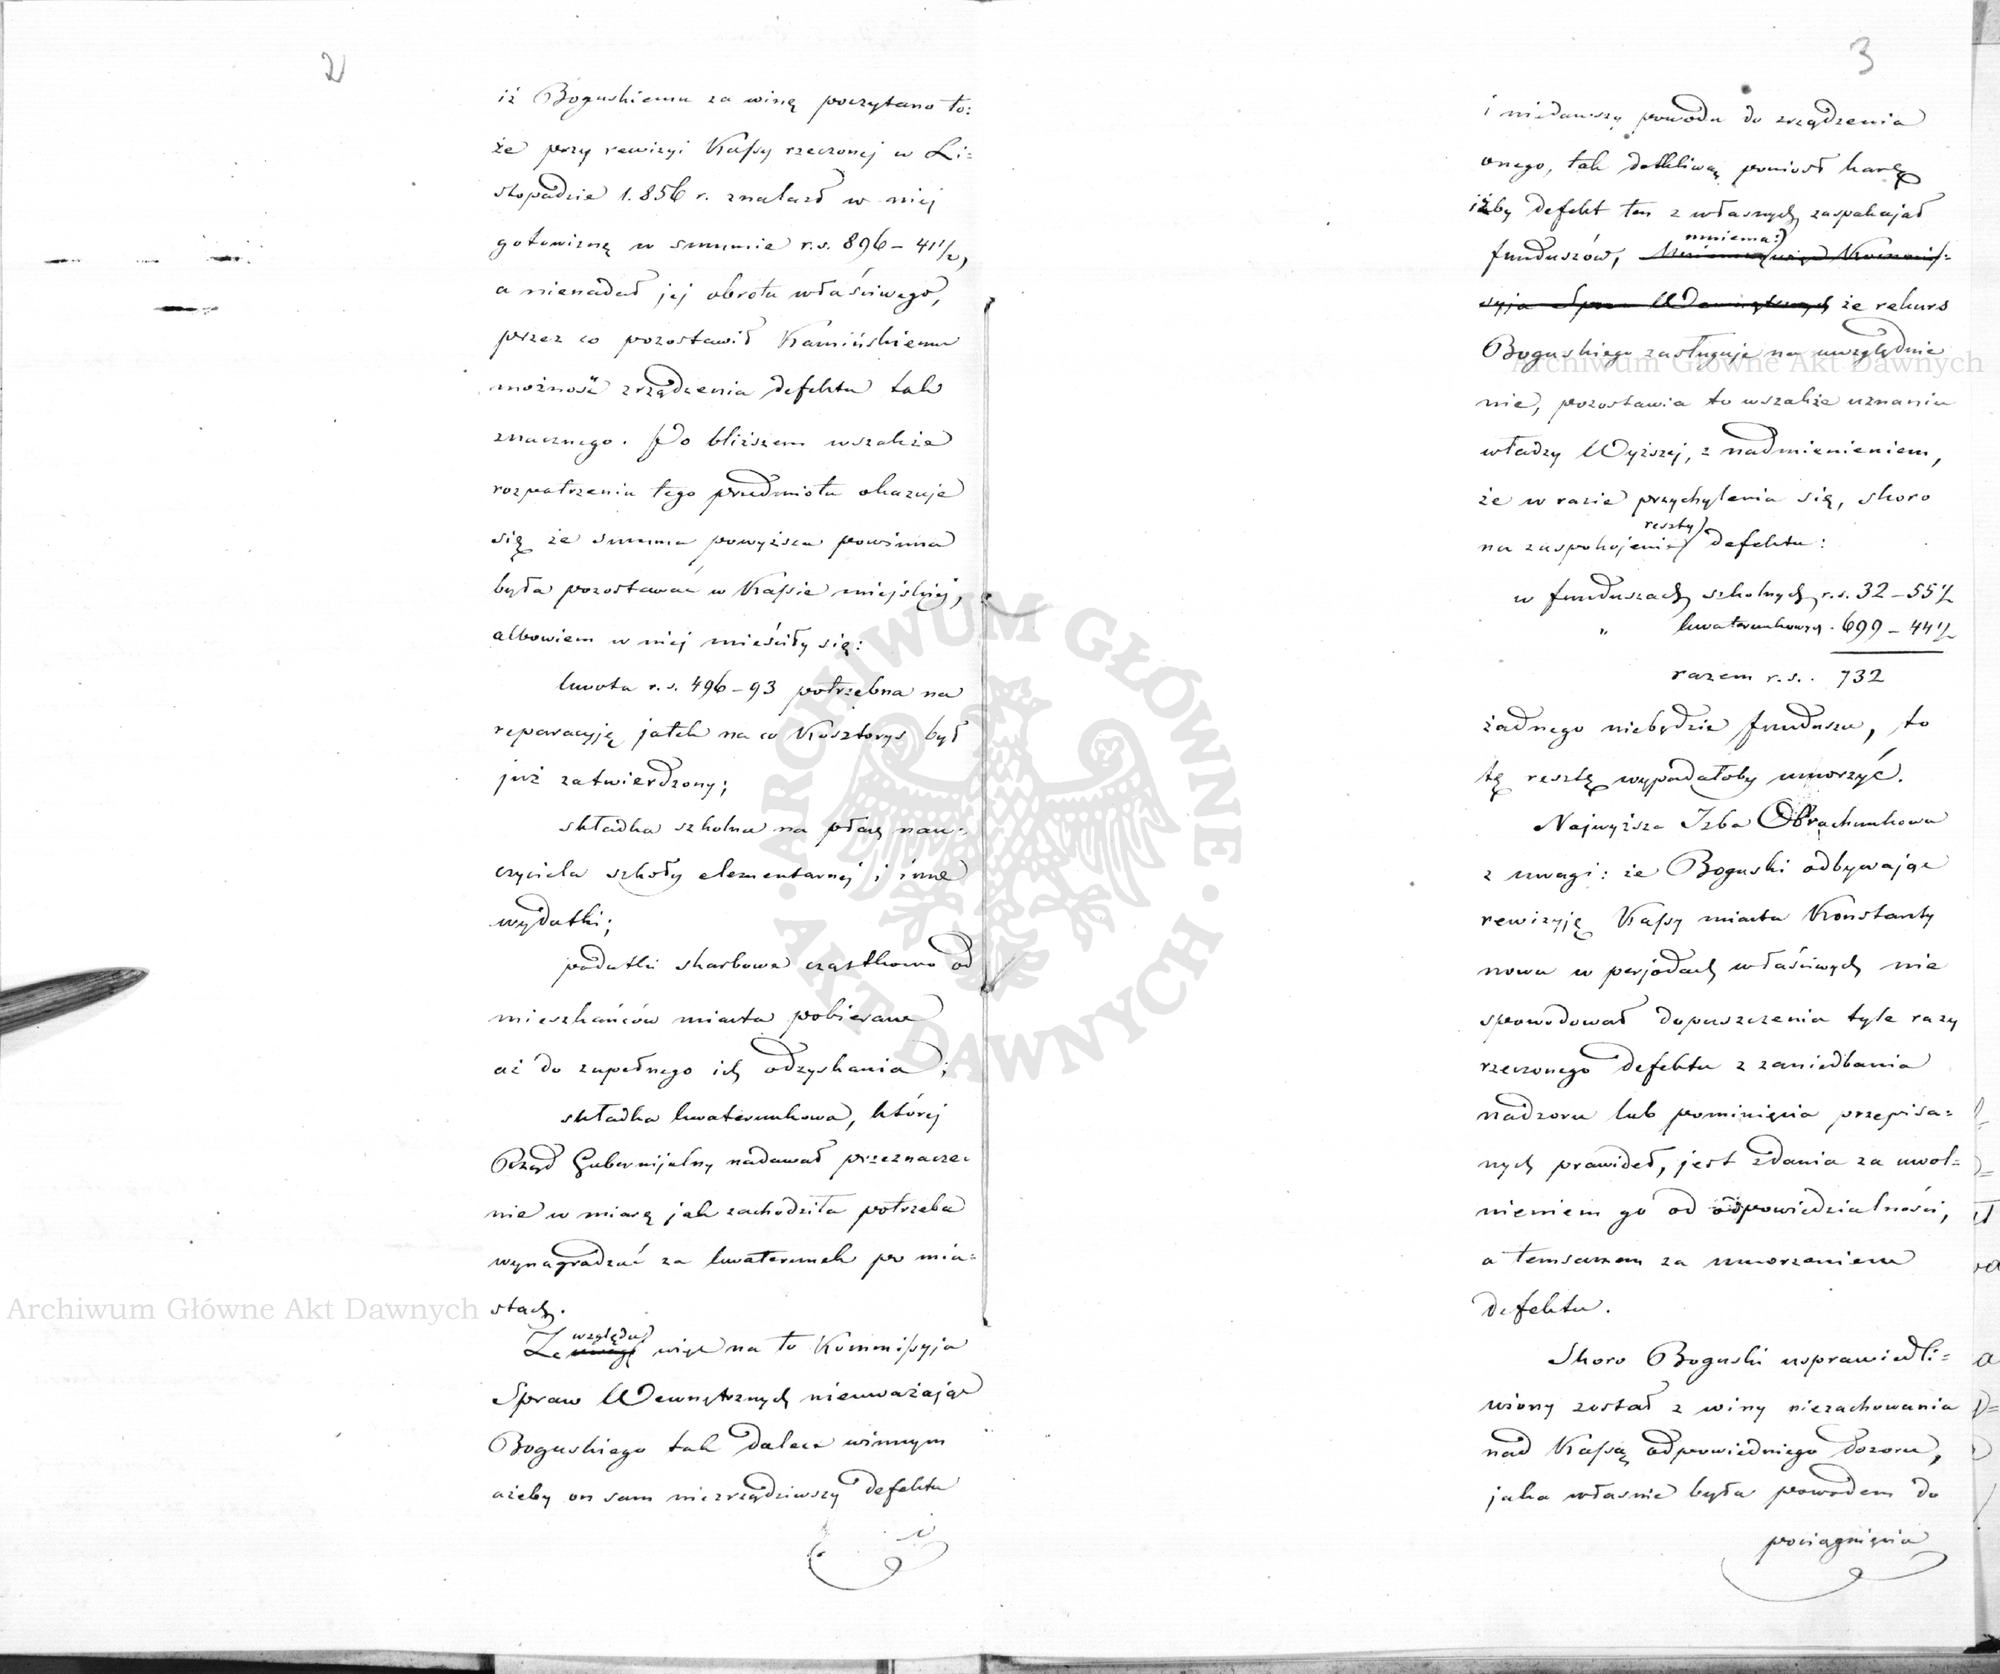 2
iż Boguskiemu za winę poczytano to:
że przy rewizyi Kassy rzeczonej w Li=
stopadzie 1.856 r. znalazł w niej
gotowiznę w summie r.s. 896 – 41 1/2,
a nienadał jej obrotu właściwego,
przez co pozostawił Kamińskiemu
możność zrządzenia defektu tak
znacznego. Po bliższem wszakże
rozpatrzeniu tego przedmiotu okazuje
się że summa powyższa powinna
była pozostawać w Kassie miejskiej,
albowiem w niej mieściły się:
kwota r.s. 496 – 93 potrzebna na
reparacyję jatek na co Kosztorys był
już zatwierdzony;
składka szkolna na płacę nau=
czyciela szkoły elementarnej i inne
wydatki;
podatki skarbowe cząstkowo od
mieszkańców miasta pobierane
aż do zupełnego ich odzyskania;
składka kwaterunkowa, której
Rząd Gubernijalny nadawał przeznacze=
nie w miarę jak zachodziła potrzeba
wynagradzać za kwaterunek po mia=
stach.
względu
Ze uwagę więc na to Kommissyja
Spraw Wewnętrznych nieuważając
Boguskiego tak dalece winnym
ażeby on sam niezrządziwszy defektu
i
3
i niedawszy powodu do zrządzenia
onego, tak dotkliwą poniosł karę
iżby defekt ten z własnych zaspakajał
mniema:
funduszów, Mniema więc Kommis=
syja Spraw Wewnętrznych że rekurs
Boguskiego zasługuje na uwzględnie
nie, pozostawia to wszakże uznaniu
władzy Wyższej, z nadmienieniem,
że w razie przychylenia się, skoro
reszty
na zaspokojenie defektu:
w funduszach szkolnych r.s. 32 – 55 1/2
" kwaterunkowych . 699 – 44 1/2
razem r.s. . 732
żadnego niebędzie funduszu, to
tę resztę wypadałoby umorzyć.
Najwyższa Izba Obrachunkowa
z uwagi: że Boguski odbywając
rewizyję Kassy miasta Konstanty
nowa w perjodach właściwych nie
spowodował dopuszczenia tyle razy
rzeczonego defektu z zaniedbania
nadzoru lub pominięcia przepisa=
nych prawideł, jest zdania za uwol=
nieniem go od odpowiedzialności,
a temsamem za umorzeniem
defektu.
Skoro Boguski usprawiedli=
wiony został z winy niezachowania
nad Kassą odpowiedniego dozoru,
jaka własnie była powodem do
pociągnięcia
Archiwum Główne Akt Dawnych
Archiwum Główne Akt Dawnych
ARCHIWUM GŁÓWNE · AKT DAWNYCH ·